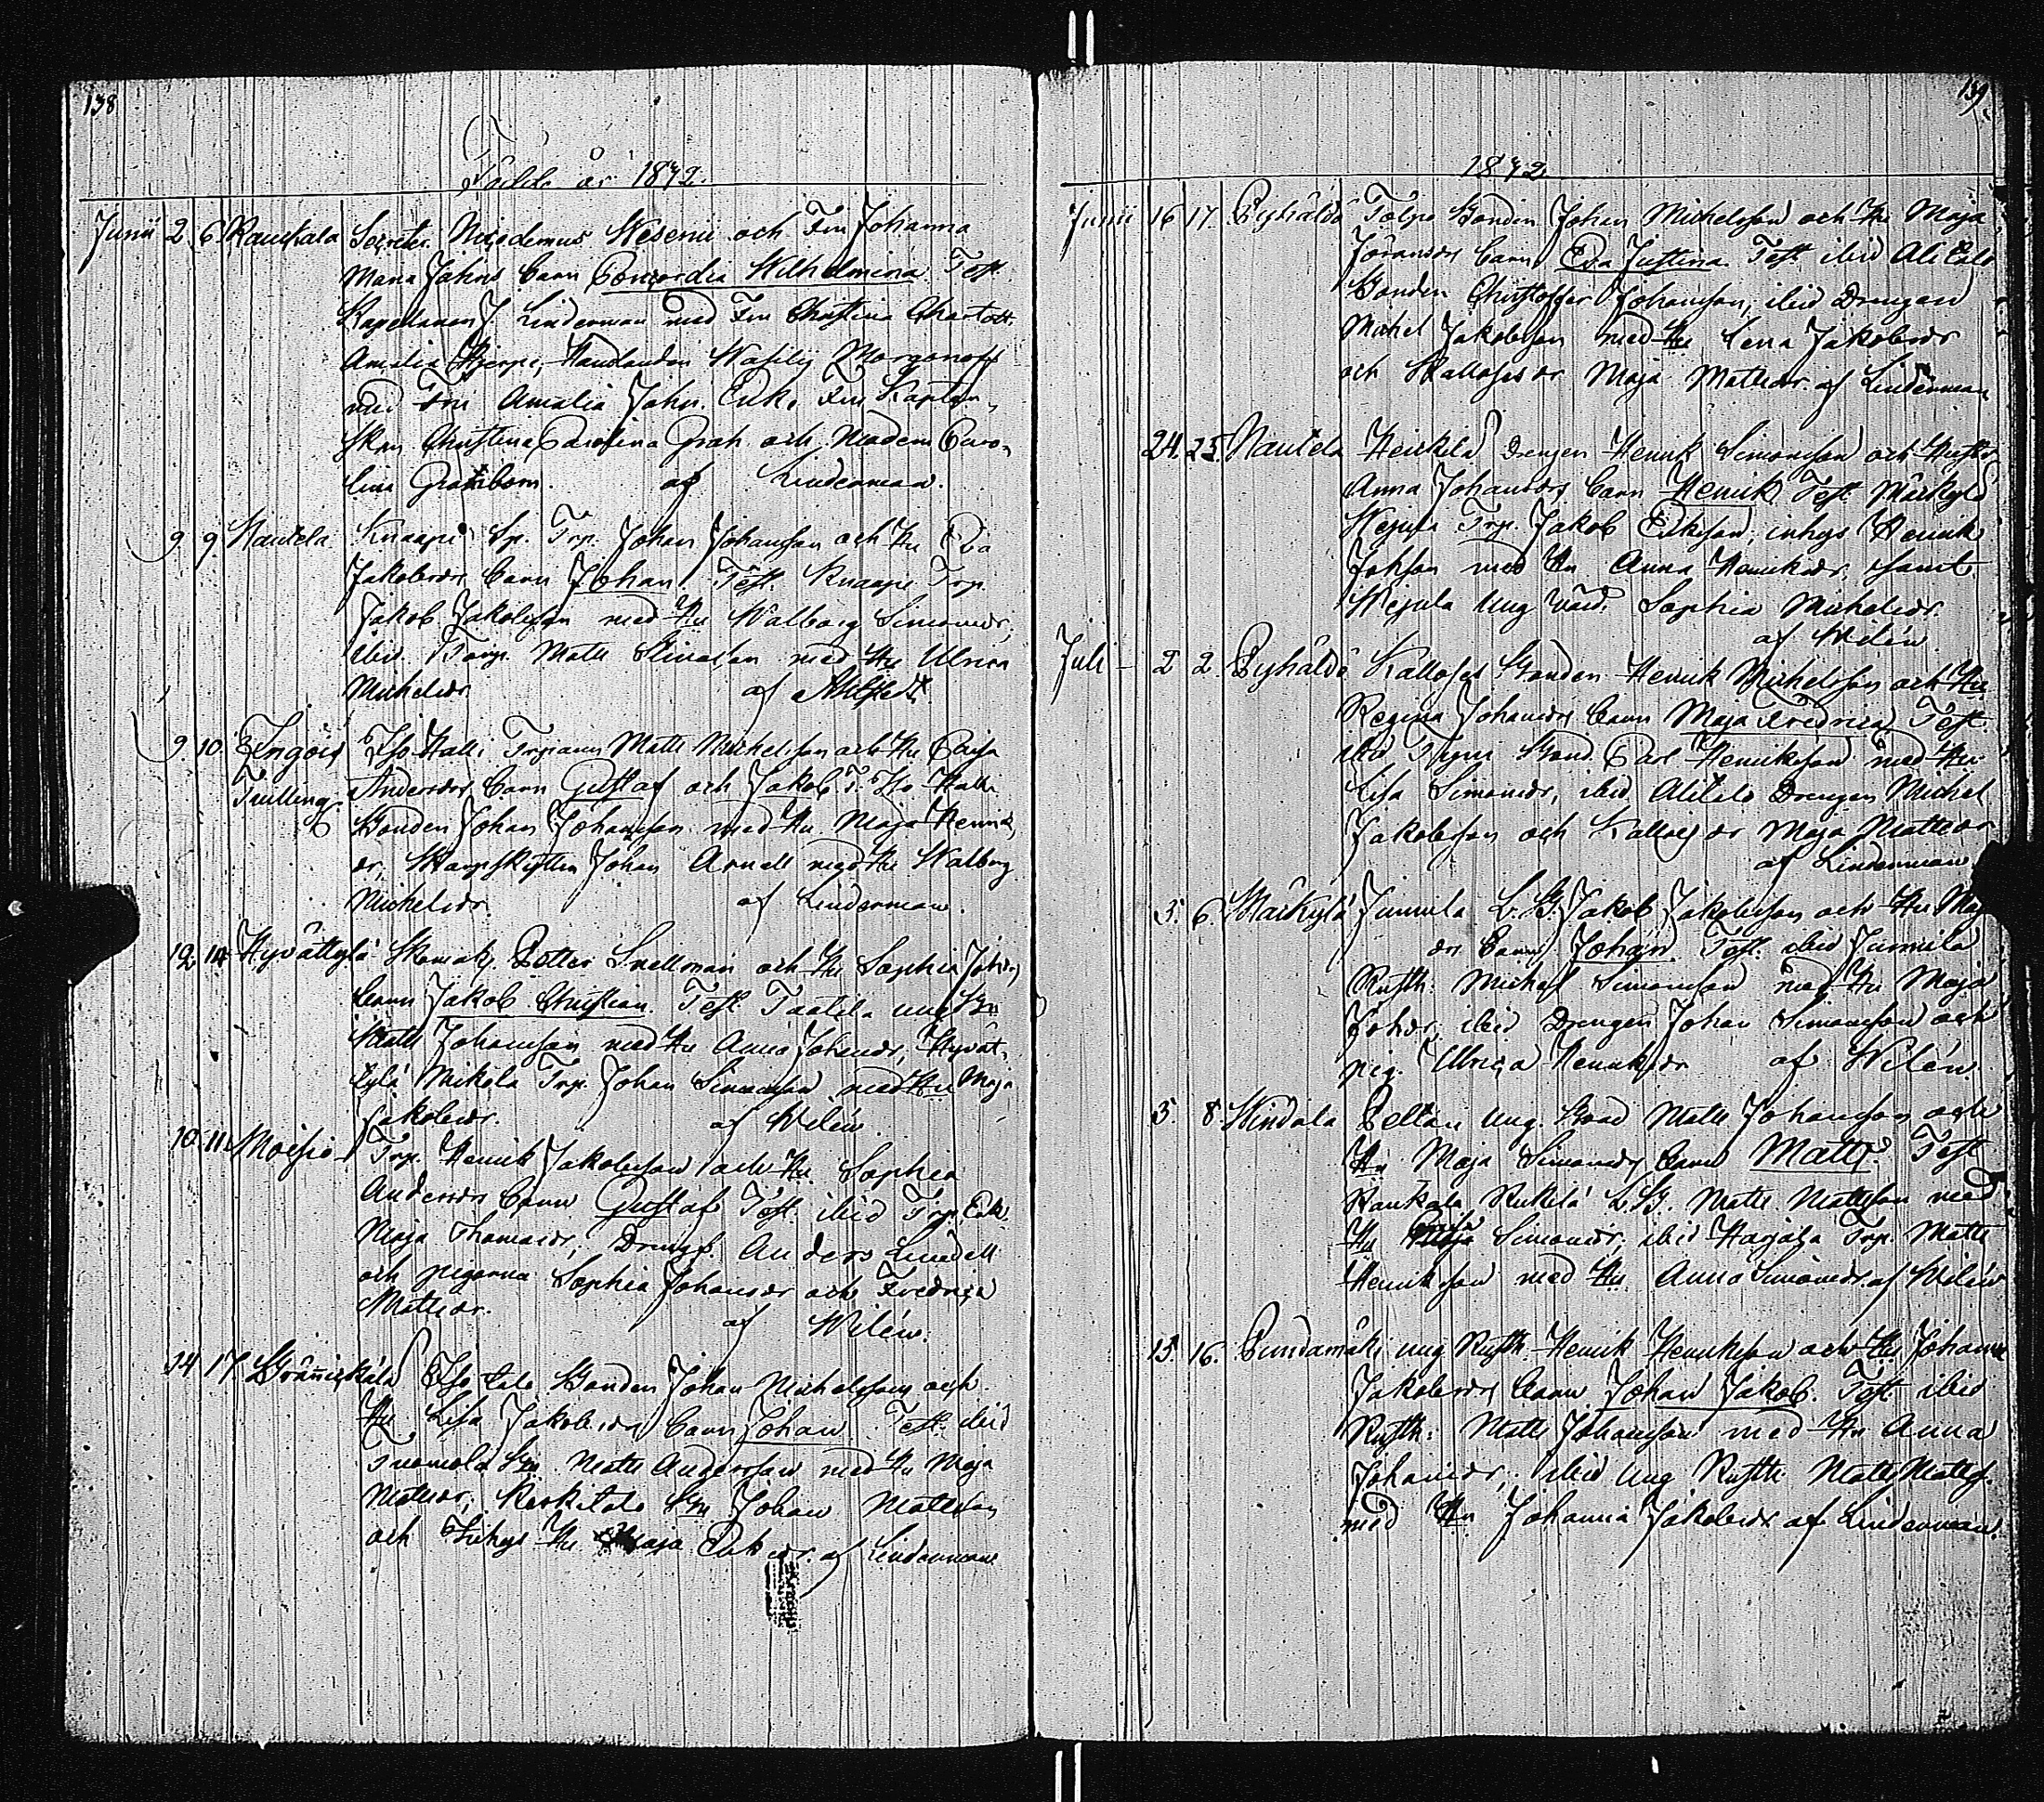 138
Födde år 1842.
Junii 2. 6. Raukala Secreter. Nicodemus Wesenii och Fru Johanna
Maria Jahns barn Concordia Wilhelmina Test.
Kapellanen J. Linderman med Fru Christina Charlott.
Amalia Hjerpe, Handlanden Wasilij Morgonoff
med Fru Amalia Jahn. Enke Fru Kapten-
skan Christina Carolina Grah och Madem Caro-
lina Grahlbom. af Linderman.
9 9. Nautela Knaapi Sp. Trp. Johan Johansson och Hu Eva
Jakobsdr barn Johan Test. Knaapi Trp.
Jakob Jakobsson med Hu Walborg Simonsdr,
ibid Torp. Matts med Hu Ulrica
Michelsdr af
9. 10. Halli Trparen Matts Michelsson och Hu Caisa
Tvilling. Andersdr barn Gustaf och Jakob T. Halli
Bonden Johan Johansson med Hu Maja Henriks
dr, Skarpskytten Johan Arnell med Hu Walborg
Michelsdr. af Linderman.
12 14 Hyvättylä Skomak. Petter Snellman och Hu Sophia Johdr
barn Jakob Christian. Test. Taatila ung Bn
Matts Johansson med Hu Anna Johansdr, Hyvät-
tylä Mikola Trp. Johan Simonsson med Hu Maja
Jakobsdr. af Wilén.
10. 11. Moisio Trp. Henrik Jakobsson och Hu Sophia
Andersdr barn Gustaf Test. ibid Trp. Enk.
Maja Thomasdr, Dreng. Anders Lindell
och pigorna Sophia Johansdr och Fredrica
Mattsdr. af Wilén.
14 17. talo Bonden Johan Michelsson och
Hu Lisa Jakobsdr barn Johan Test. ibid
Tuomola Bn Matts Andersson med Hu Maja
Mattsdr, Bn Johan Mattsson
och Inhys Hu Maja Eriksdr. af Linderman
139
1842
Junii 16 17. Pyhäldö Tölpo Bonden Johan Michelsson och Hu Maja
Göransdr barn Eva Justina Test. ibid Ali Talo
Bonden Christoffer Johansson, ibid Drengen
Michel Jakobsson med Hu Lena Jakobsdr
och dr Maja Mattsdr af Linderman
24. 25. Nautela Heickilä Drengen Henrik Simonsson och Hustr
Anna Johansdr barn Henrik Test. Märkylä
Trp. Jakob Eriksson, inhys Henrik
Johsson med Hu Anna Henriksdr, samt
Ung värd. Sophia Michelsdr.
af Wilén
Juli 2 2. Pyhäldö Kalloses Bonden Henrik Michelsson och Hu
Regina Johansdr barn Maja Fredrica Test.
ibid Bond. Carl Henriksson med Hu
Lisa Simonsdr, ibid Alitalo Drengen Michel
Jakobsson och dr Maja Mattsdr
af Linderman
3. 6. Märkylä Junnila L. B. Jakob Jakobsson och Hu Maj
dr barn Johan Test. ibid Junnila
Rusth: Michel Simonsson med Hu Maja
Johdr, ibid Drengen Johan Simonsson och
pig. Ulrica Henriksdr af Wilén.
5. 8. Windala Peltari Ung. Bond Matts Johansson och
Hu Maja Simonsdr barn Matts. Test
Raukala L. B. Matts Mattsson med
Hu Caisa Simonsdr, ibid Harjala Trp. Matts
Henriksson med Hu Anna Simonsdr. af Wilén
15. 16. Pundamäki ung Rusth. Henrik Henriksson och Hu Johanna
Jakobsdr barn Johan Jakob. Test. ibid
Rusth: Matts Johansson med Hu Anna
Johansdr, ibid ung Rusth: Matts Mattss.
med Hu Johanna Jakobsdr af Linderman.